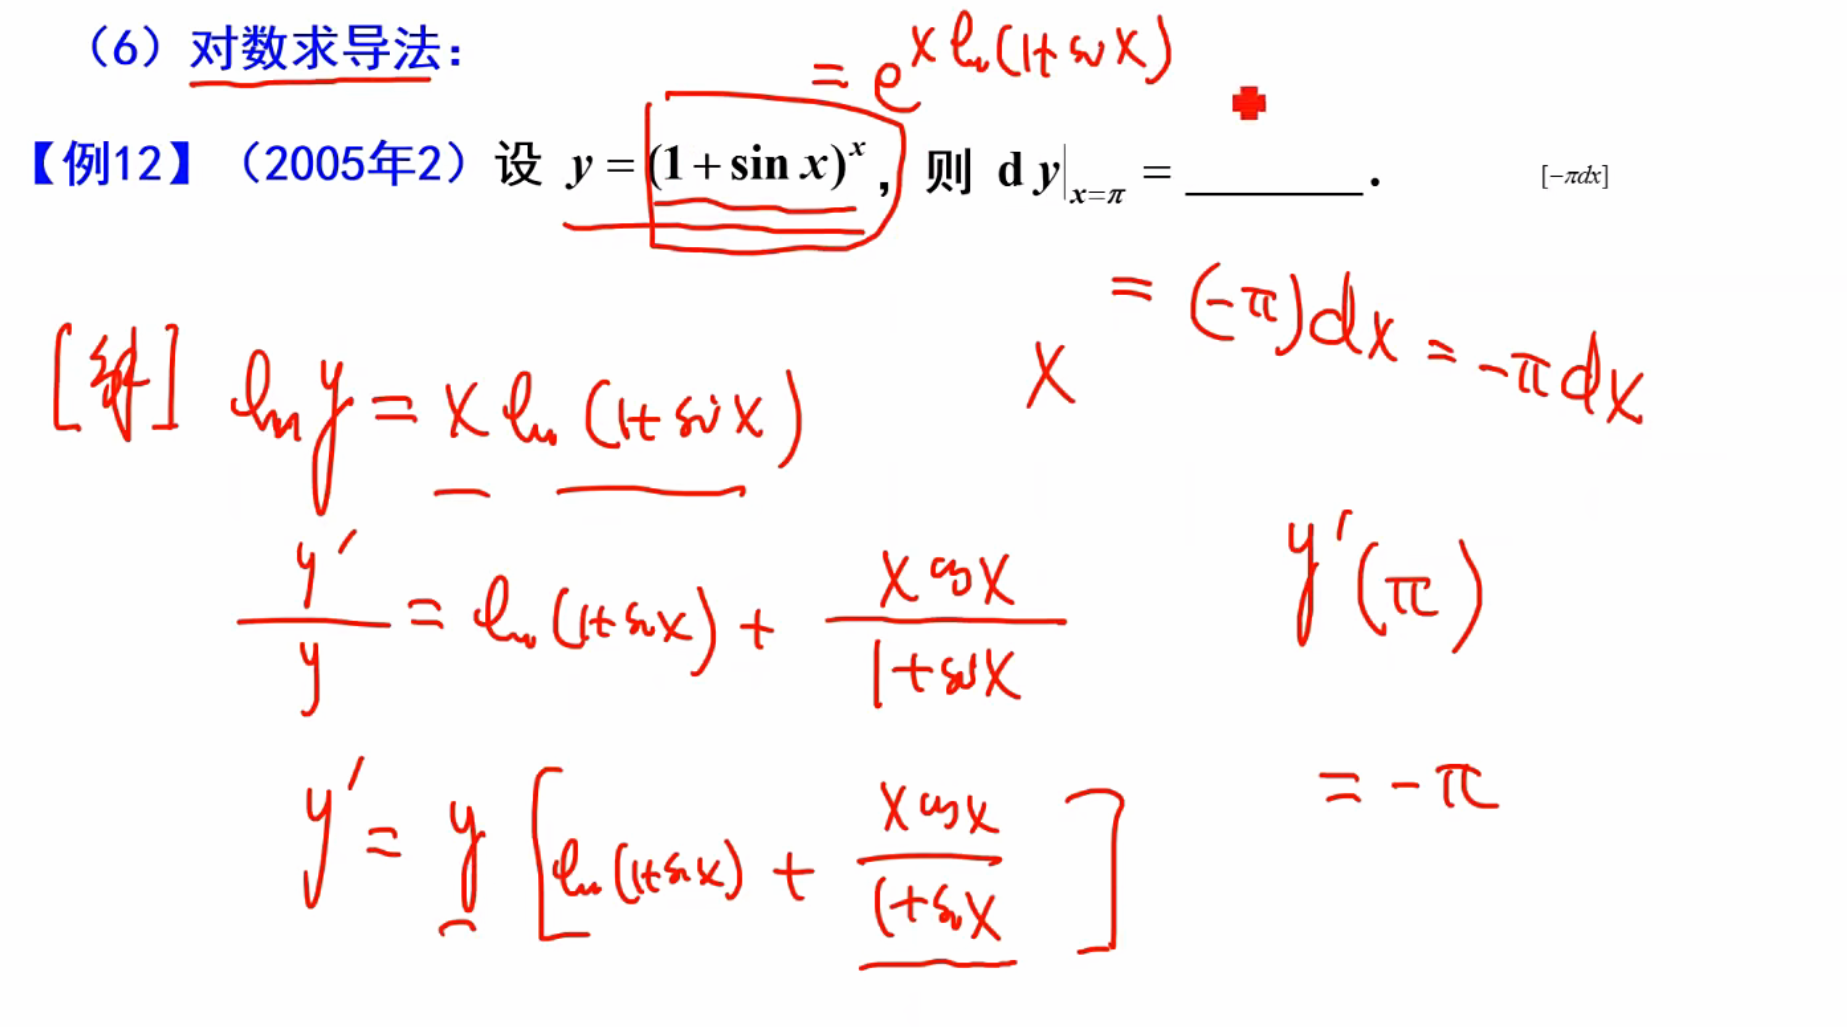 （6）对数求导法：
= e^{x ln(1+sin x)}
【例12】（2005年2）设 y = (1 + sin x)^x ，则 d y|_{x=π} = ______. [−πdx]
= (−π)dx = −πdx
x
[解] ln y = x ln (1+sin x)
y′/y = ln (1+sin x) + x cos x/(1+sin x)
y′(π)
= −π
y′ = y [ln (1+sin x) + x cos x/(1+sin x)]